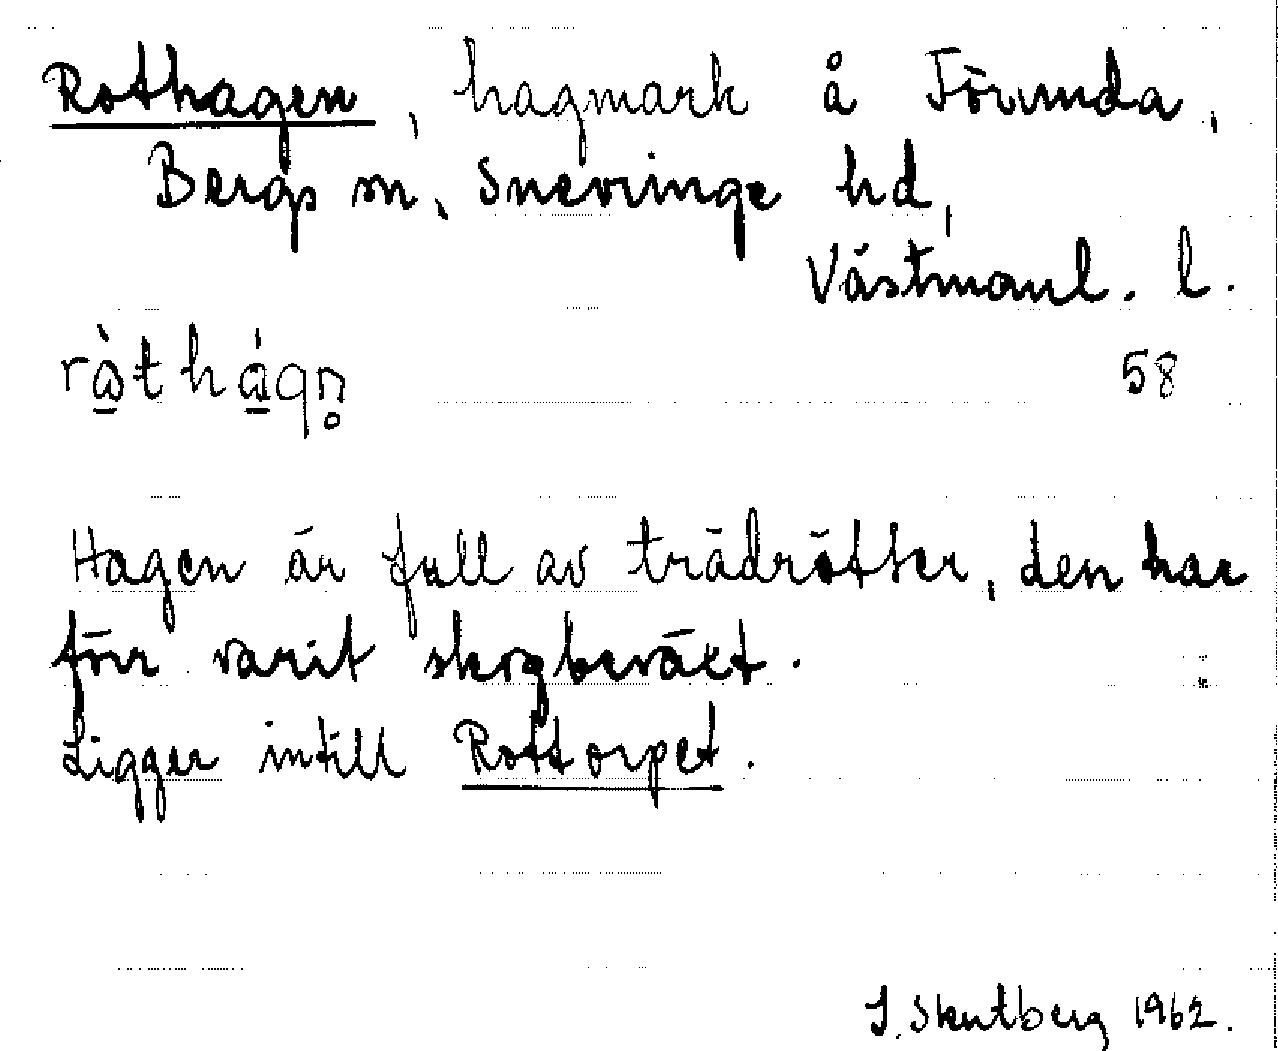 Rothagen, hagmark å Förunda,
Bergs sn, Snevringe hd,
Västmanl. l.
ràthágn̥ 58
Hagen är full av trädrötter, den har
förr varit skogbeväxt.
Ligger intill Rottorpet.
J. Skutberg 1962.